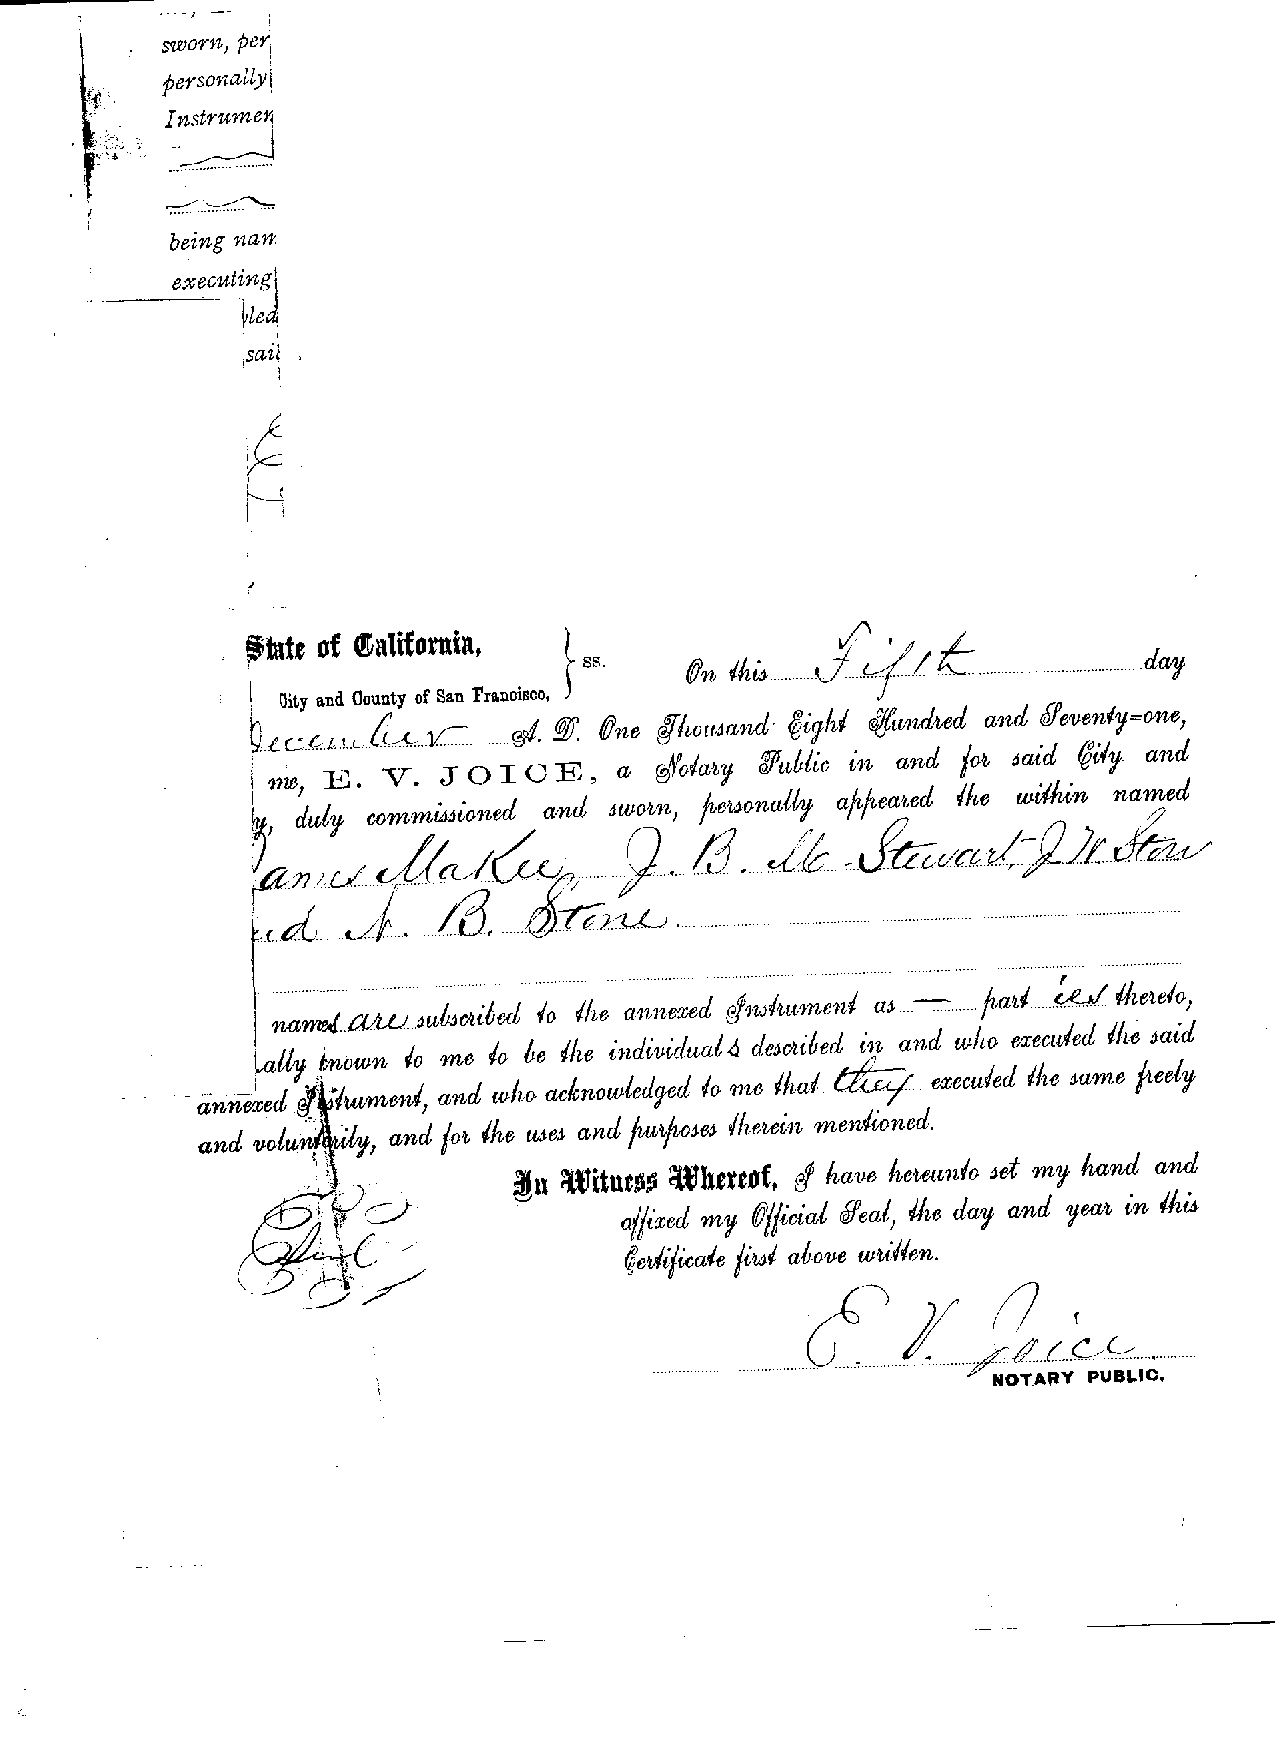 sworn, per
personally
Instrumen
being nam
executing
led
sail
State of California,
ss.
City and County of San Francisco,
On this Fifth day
December A. D. One Thousand Eight Hundred and Seventy=one,
me, E. V. JOICE, a Notary Public in and for said City and
y, duly commissioned and sworn, personally appeared the within named
ames MaKee, J. B. Mc Stewart, J W Ston
nd N. B. Stone.
names are subscribed to the annexed Instrument as — part ies thereto,
ally known to me to be the individuals described in and who executed the said
annexed Instrument, and who acknowledged to me that they executed the same freely
and voluntarily, and for the uses and purposes therein mentioned.
In Witness Whereof, I have hereunto set my hand and
affixed my Official Seal, the day and year in this
Certificate first above written.
E. V. Joice
NOTARY PUBLIC.